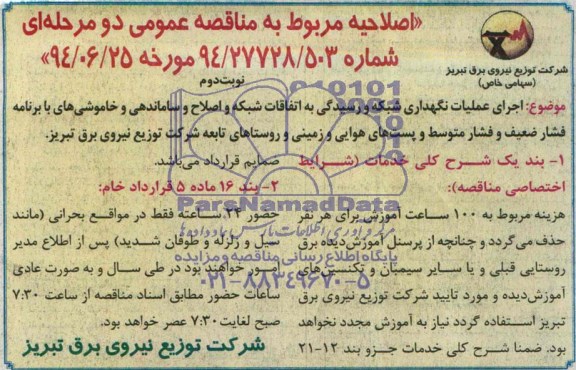 «اصلاحیه مربوط به مناقصه عمومی دو مرحله‌ای
شماره ۹۴/۲۷۷۲۸/۵۰۳ مورخه ۹۴/۰۶/۲۵»
نوبت‌دوم
شرکت توزیع نیروی برق تبریز
(سهامی خاص)
موضوع: اجرای عملیات نگهداری شبکه و رسیدگی به اتفاقات شبکه و اصلاح و ساماندهی و خاموشی‌های با برنامه
فشار ضعیف و فشار متوسط و پست‌های هوایی و زمینی و روستاهای تابعه شرکت توزیع نیروی برق تبریز.
۱- بند یک شرح کلی خدمات (شرایط
اختصاصی مناقصه):
هزینه مربوط به ۱۰۰ ساعت آموزش برای هر نفر
حذف می‌گردد و چنانچه از پرسنل آموزش‌دیده برق
روستایی قبلی و یا سایر سیمبان و تکنسین‌های
آموزش‌دیده و مورد تایید شرکت توزیع نیروی برق
تبریز استفاده گردد نیاز به آموزش مجدد نخواهد
بود. ضمنا شرح کلی خدمات جزو بند ۱۲-۲۱
ضمایم قرارداد می‌باشد.
۲- بند ۱۶ ماده ۵ قرارداد خام:
حضور ۲۴ ساعته فقط در مواقع بحرانی (مانند
سیل و زلزله و طوفان شدید) پس از اطلاع مدیر
امور خواهند بود در طی سال و به صورت عادی
ساعات حضور مطابق اسناد مناقصه از ساعت ۷:۳۰
صبح لغایت ۷:۳۰ عصر خواهد بود.
شرکت توزیع نیروی برق تبریز
ParsNamadData
مرکز فرآوری اطلاعات پارس نماد داده‌ها
پایگاه اطلاع رسانی مناقصه و مزایده
۰۲۱-۸۸۳۴۹۶۷۰-۵